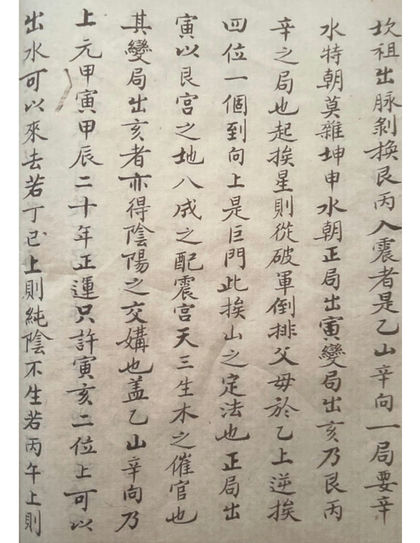 坎祖出脉剝換艮丙入震者是乙山辛向一局要辛
水特朝莫雜坤申水朝正局出寅變局出亥乃艮丙
辛之局也起挨星則從破軍倒排父母於乙上逆挨
四位一個到向上是巨門此挨山之定法也正局出
寅以艮宮之地八成之配震宮天三生木之催官也
其變局出亥者亦得陰陽之交媾也盖乙山辛向乃
上元甲寅甲辰二十年正運只許寅亥二位上可以
出水可以來去若丁巳上則純陰不生若丙午上則